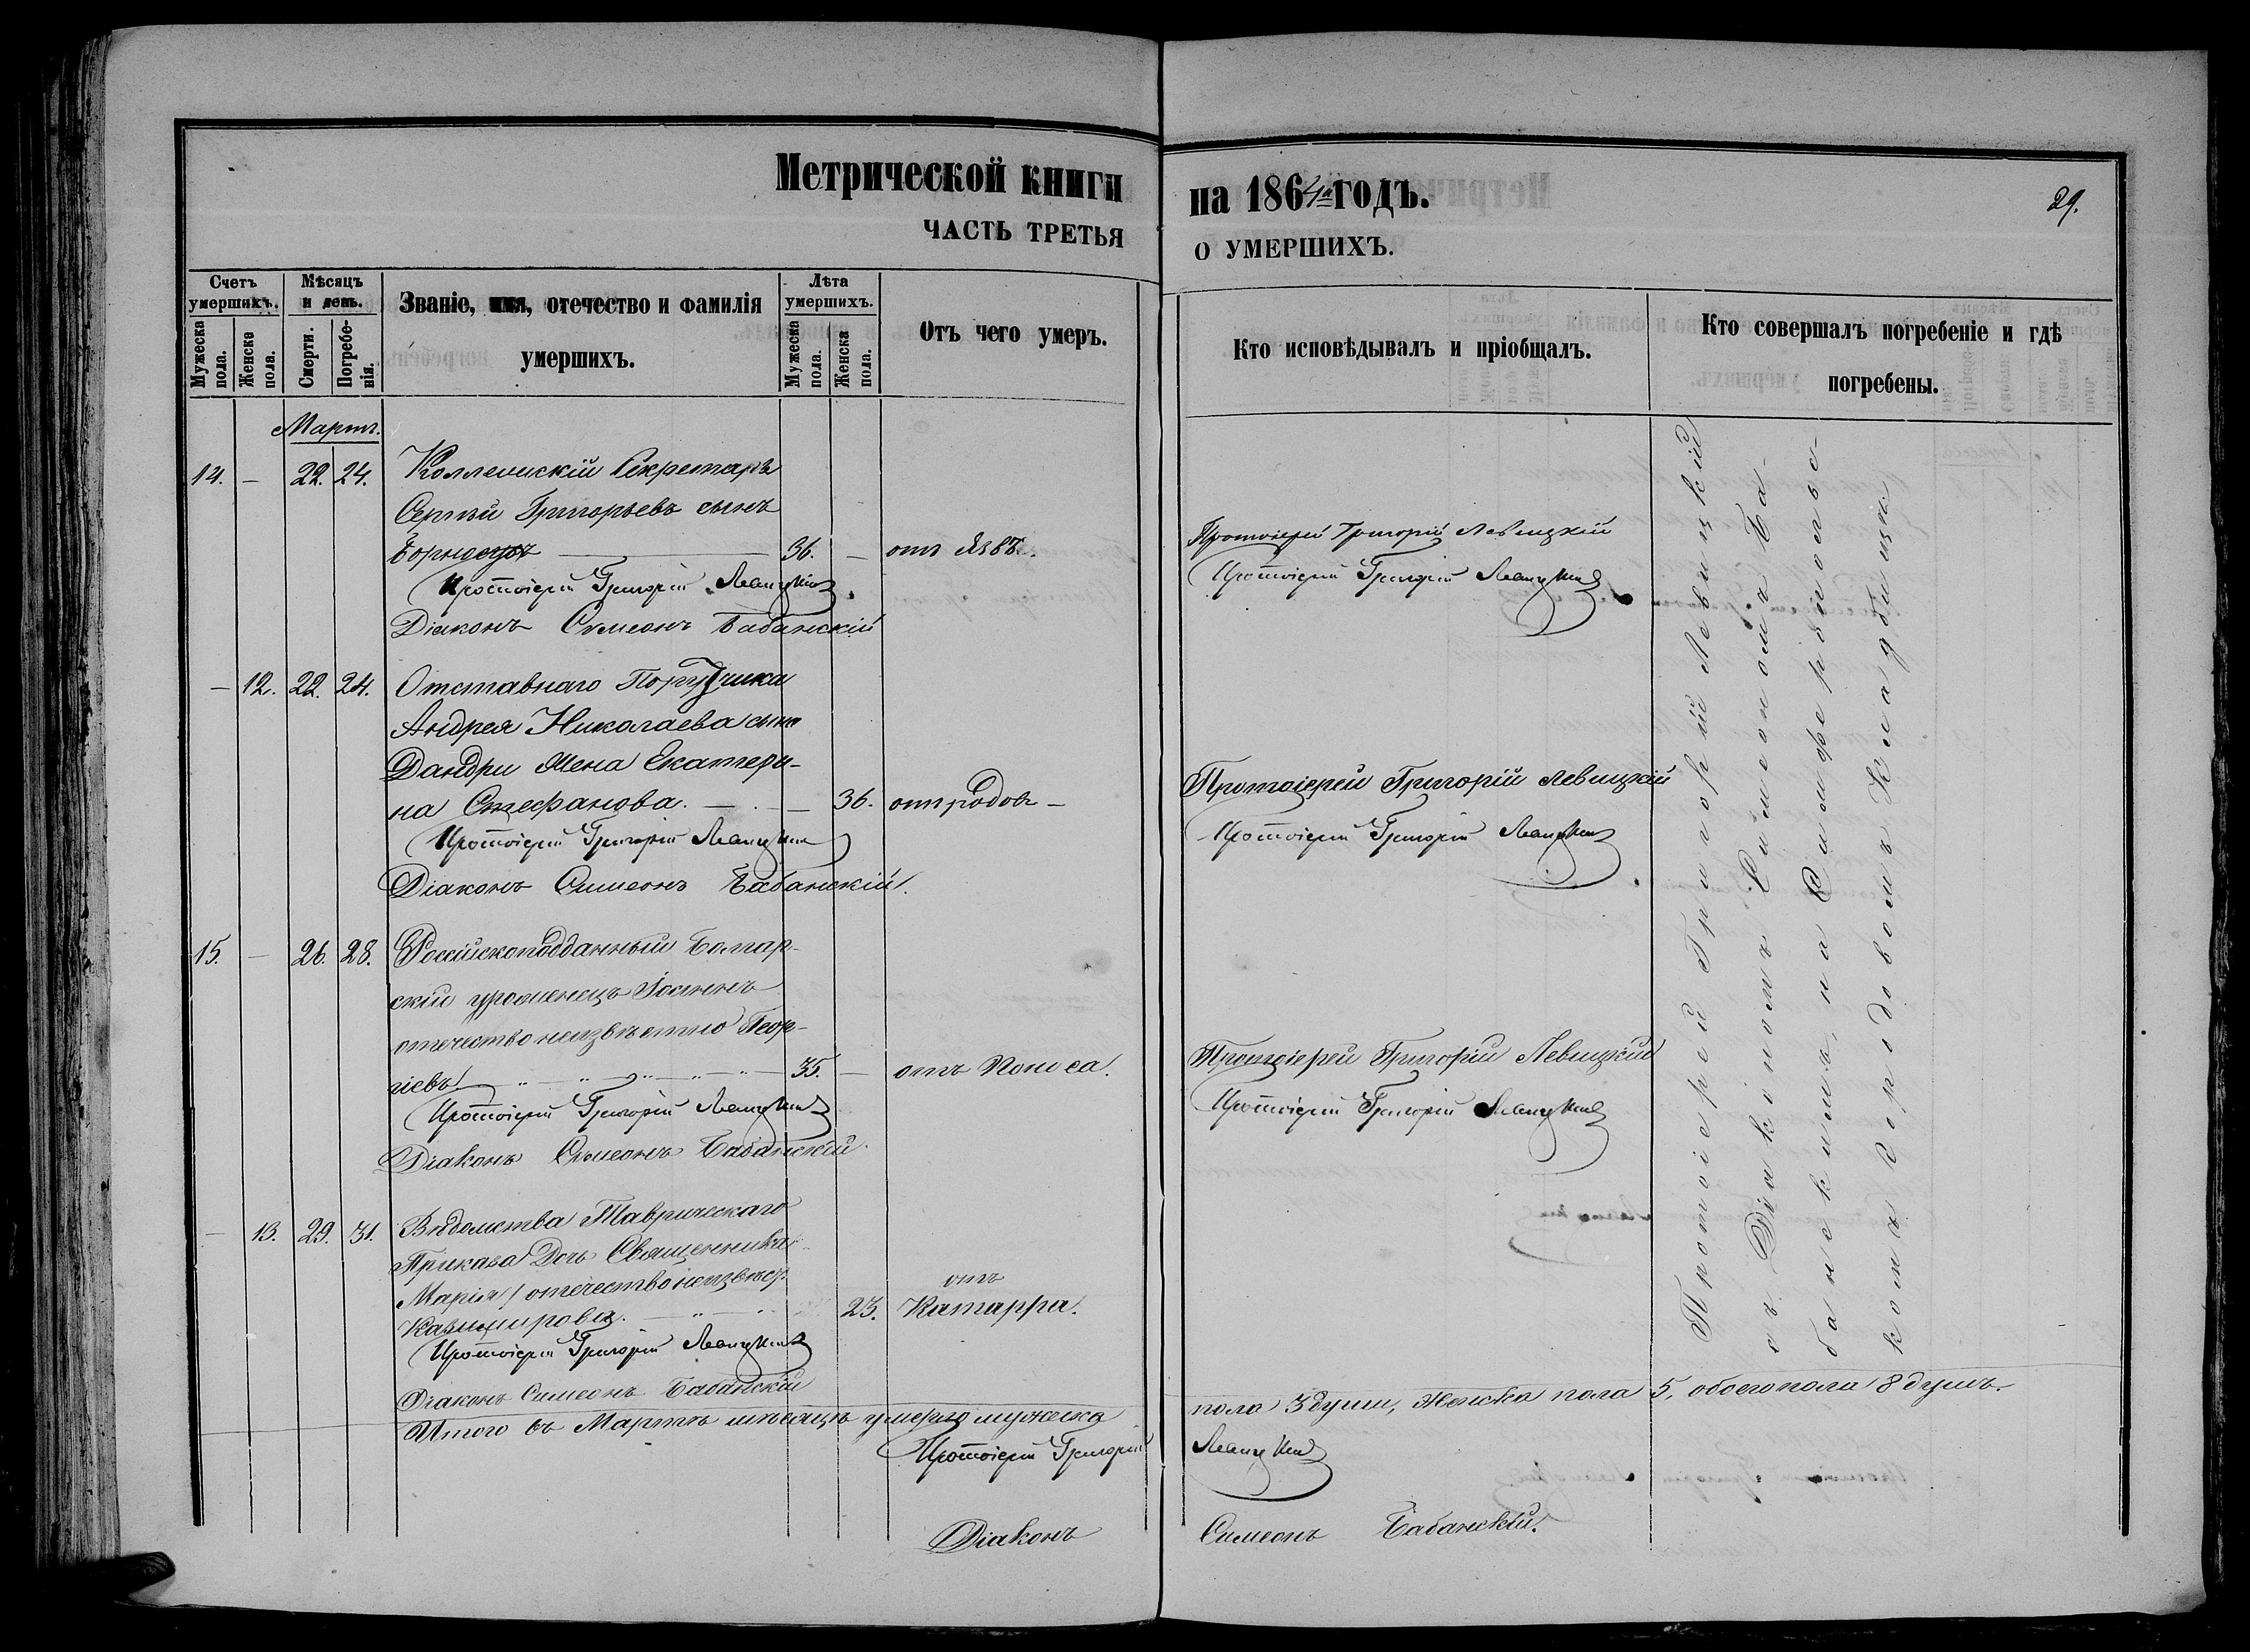 Метрической книги
на 1864й годъ.
29.
ЧАСТЬ ТРЕТЬЯ
О УМЕРШИХЪ.
Счетъ умершихъ.
Мужеска пола.
Женска пола.
Мѣсяцъ и день.
Смерти.
Погребенія.
Званіе, имя, отечество и фамилія
умершихъ.
Лѣта умершихъ.
Мужеска пола.
Женска пола.
Отъ чего умеръ.
Кто исповѣдывалъ и пріобщалъ.
Кто совершалъ погребеніе и гдѣ
погребены.
Мартъ.
14. — 22. 24. Коллежскій Секретарь
Сергѣй Григорьевъ сынъ
36. — отъ Язвъ.
Протоіерей Григорій Левицкій
Діаконъ Симеонъ Бабанскій
Протоіерей Григорій Левицкій
Протоіерей Григорій Левицкій
— 12. 22. 24. Отставнаго Поручика
Андрея Николаева сына
Дандри Жена Екатери-
на Стефанова. — 36. отъ родовъ —
Протоіерей Григорій Левицкій
Діаконъ Симеонъ Бабанскій.
Протоіерей Григорій Левицкій
Протоіерей Григорій Левицкій
15. — 26. 28. Россійскоподданный Болгар-
скій уроженецъ Іоаннъ
отечество неизвѣстно Геор-
гіевъ 35. — отъ Поноса.
Протоіерей Григорій Левицкій
Діаконъ Симеонъ Бабанскій.
Протоіерей Григорій Левицкій
Протоіерей Григорій Левицкій
— 13. 29. 31. Вѣдомства Таврическаго
Приказа Дочь Священника
Марія / отечество неизвѣст.
Казимирова. 23. отъ Катарра.
Протоіерей Григорій Левицкій
Діаконъ Симеонъ Бабанскій
Протоіерей Григорій Левицкій
съ Діакономъ Симеономъ Ба-
банскимъ, на Симферопольс-
комъ городовомъ Кладбищѣ.
Итого въ Мартѣ мѣсяцѣ умерло мужеска
пола 3 души, Женска пола 5, обоего пола 8 душъ.
Протоіерей Григорій Левицкій
Діаконъ Симеонъ Бабанскій.